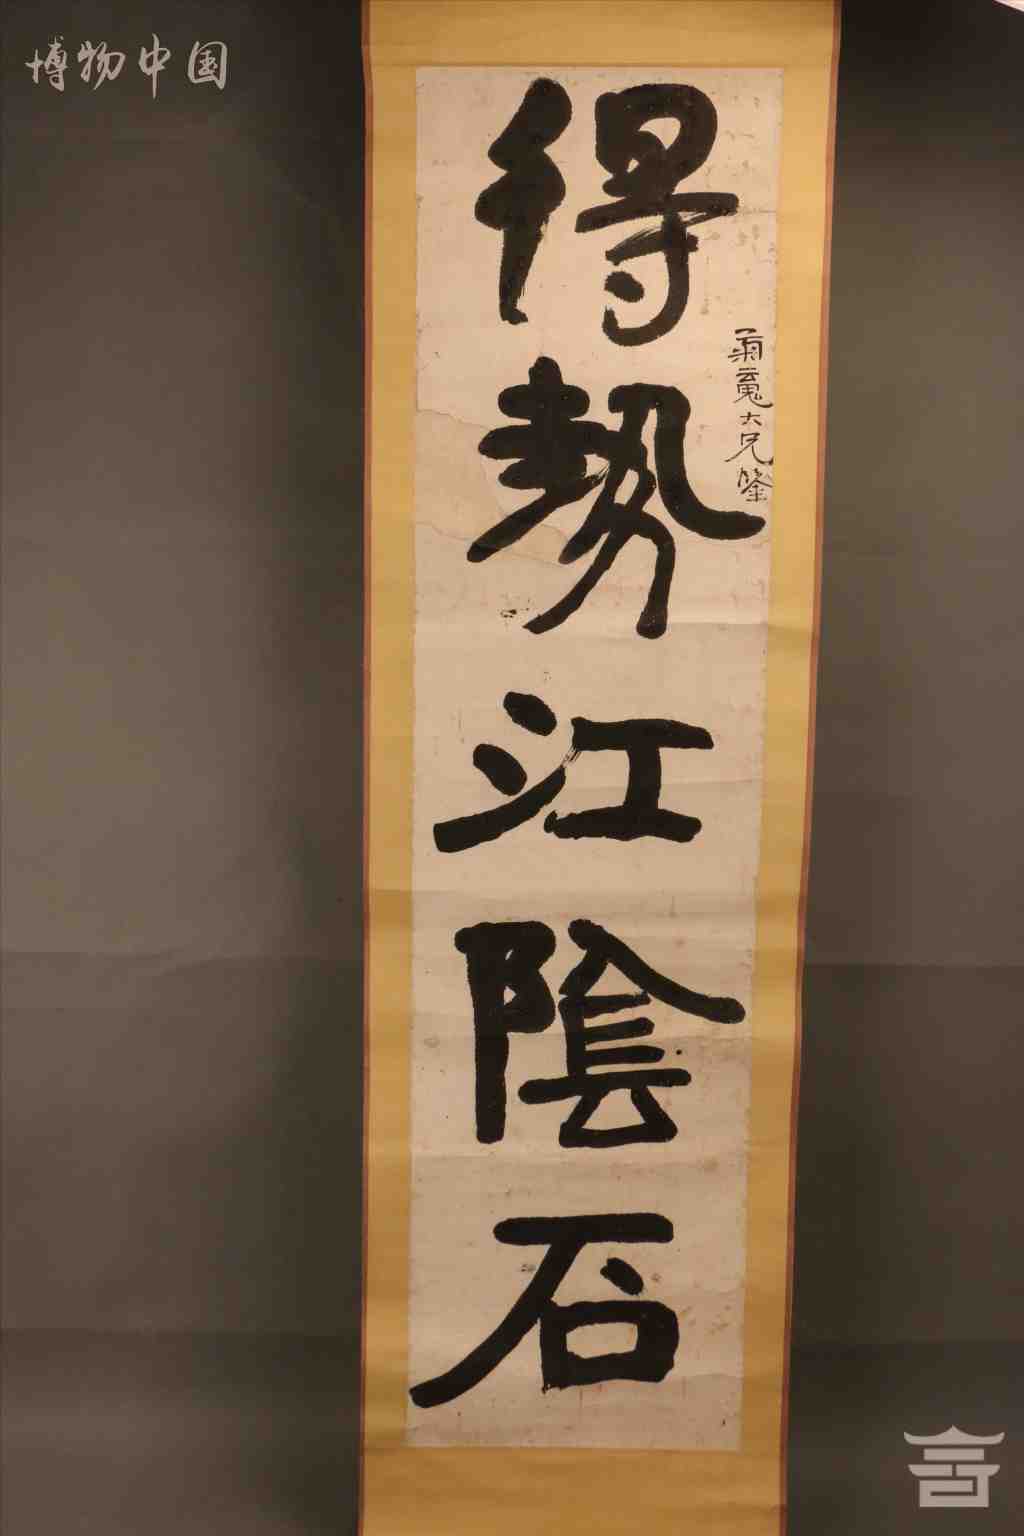 博物中国
得勢江陰石
菊魂大兄鑒